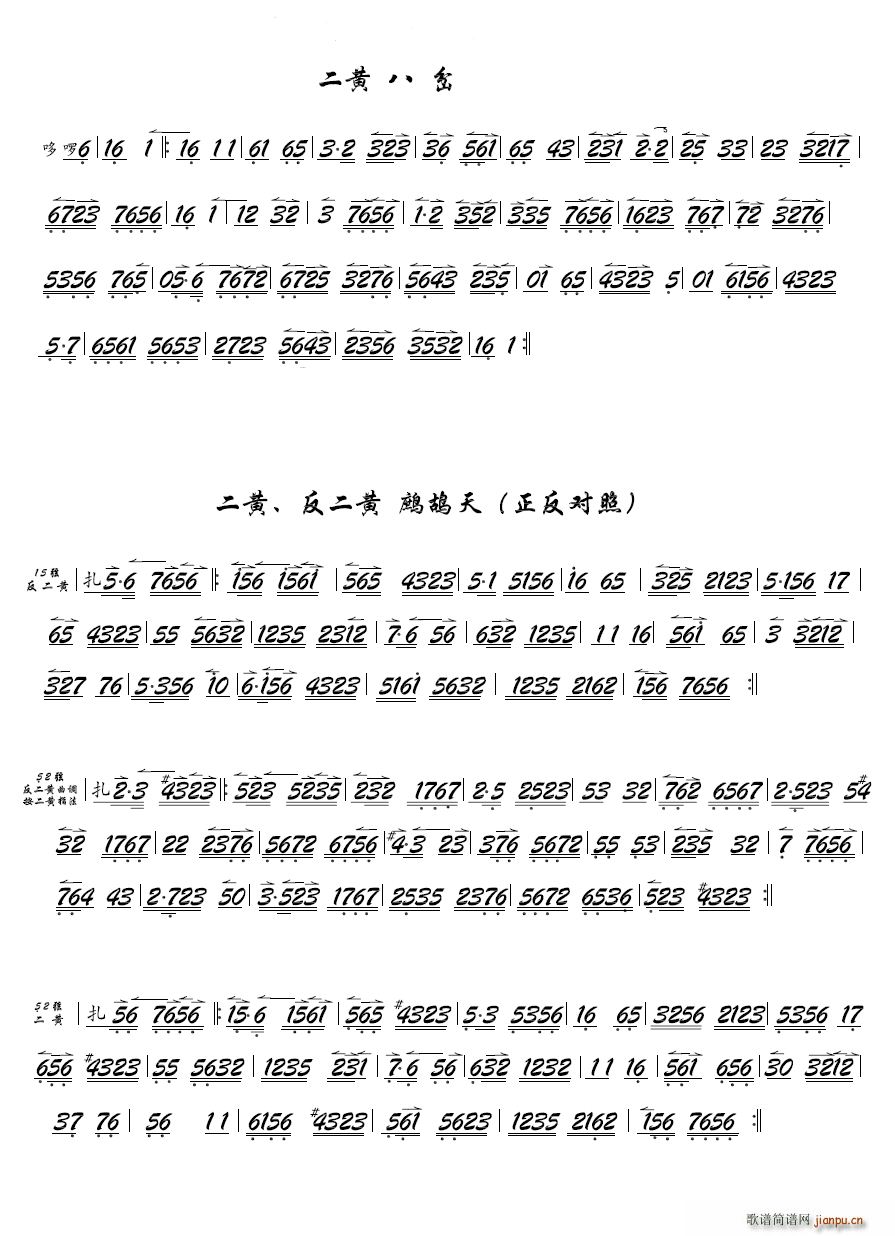 二黄 八 岔
哆 啰6 | 16 1 |: 16 11 | 61 65 | 3·2 323 | 36 561 | 65 43 | 231 2·2 | 25 33 | 23 3217 |
6723 7656 | 16 1 | 12 32 | 3 7656 | 1·2 352 | 335 7656 | 1623 767 | 72 3276 |
5356 765 | 05·6 7672 | 6725 3276 | 5643 235 | 01 65 | 4323 5 | 01 6156 | 4323
5·7 | 6561 5653 | 2723 5643 | 2356 3532 | 16 1 :|
二黄、反二黄 鹧鸪天（正反对照）
15弦
反二黄 | 扎 5·6 7656 |: 156 1561 | 565 4323 | 5·1 5156 | 16 65 | 325 2123 | 5·156 17 |
65 4323 | 55 5632 | 1235 2312 | 7·6 56 | 632 1235 | 11 16 | 561 65 | 3 3212 |
327 76 | 5·356 10 | 6·156 4323 | 5161 5632 | 1235 2162 | 156 7656 :|
52弦
反二黄曲调
按二黄指法 | 扎 2·3 #4323 |: 523 5235 | 232 1767 | 2·5 2523 | 53 32 | 762 6567 | 2·523 5#4
32 1767 | 22 2376 | 5672 6756 | #4·3 23 | 376 5672 | 55 53 | 235 32 | 7 7656 |
764 43 | 2·723 50 | 3·523 1767 | 2535 2376 | 5672 6536 | 523 #4323 :|
52弦
二黄 | 扎 56 7656 |: 15·6 1561 | 565 #4323 | 5·3 5356 | 16 65 | 3256 2123 | 5356 17
656 #4323 | 55 5632 | 1235 231 | 7·6 56 | 632 1232 | 11 16 | 561 656 | 30 3212 |
37 76 | 56 11 | 6156 #4323 | 561 5623 | 1235 2162 | 156 7656 :|
歌谱简谱网 jianpu.cn